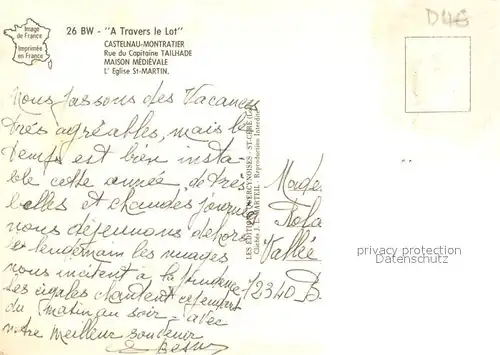 Image
de France
Imprimée
en France
26 BW - "A Travers le Lot"
CASTELNAU-MONTRATIER
Rue du Capitaine TAILHADE
MAISON MÉDIÉVALE
L' Eglise St-MARTIN.
D46
Nous passons des Vacances
très agréables, mais le
temps est bien insta-
ble cette année, de très
belles et chaudes journées
nous déjeunons dehors
le lendemain les nuages
nous incitent à la prudence
Les cigales chantent cependant
du matin au soir - avec
notre meilleur souvenir
LES EDITIONS QUERCYNOISES - ST-CERE (Lot)
Clichés J. L. MARTEIL - Reproduction Interdite
Made
Vallée
72340
privacy protection
Datenschutz